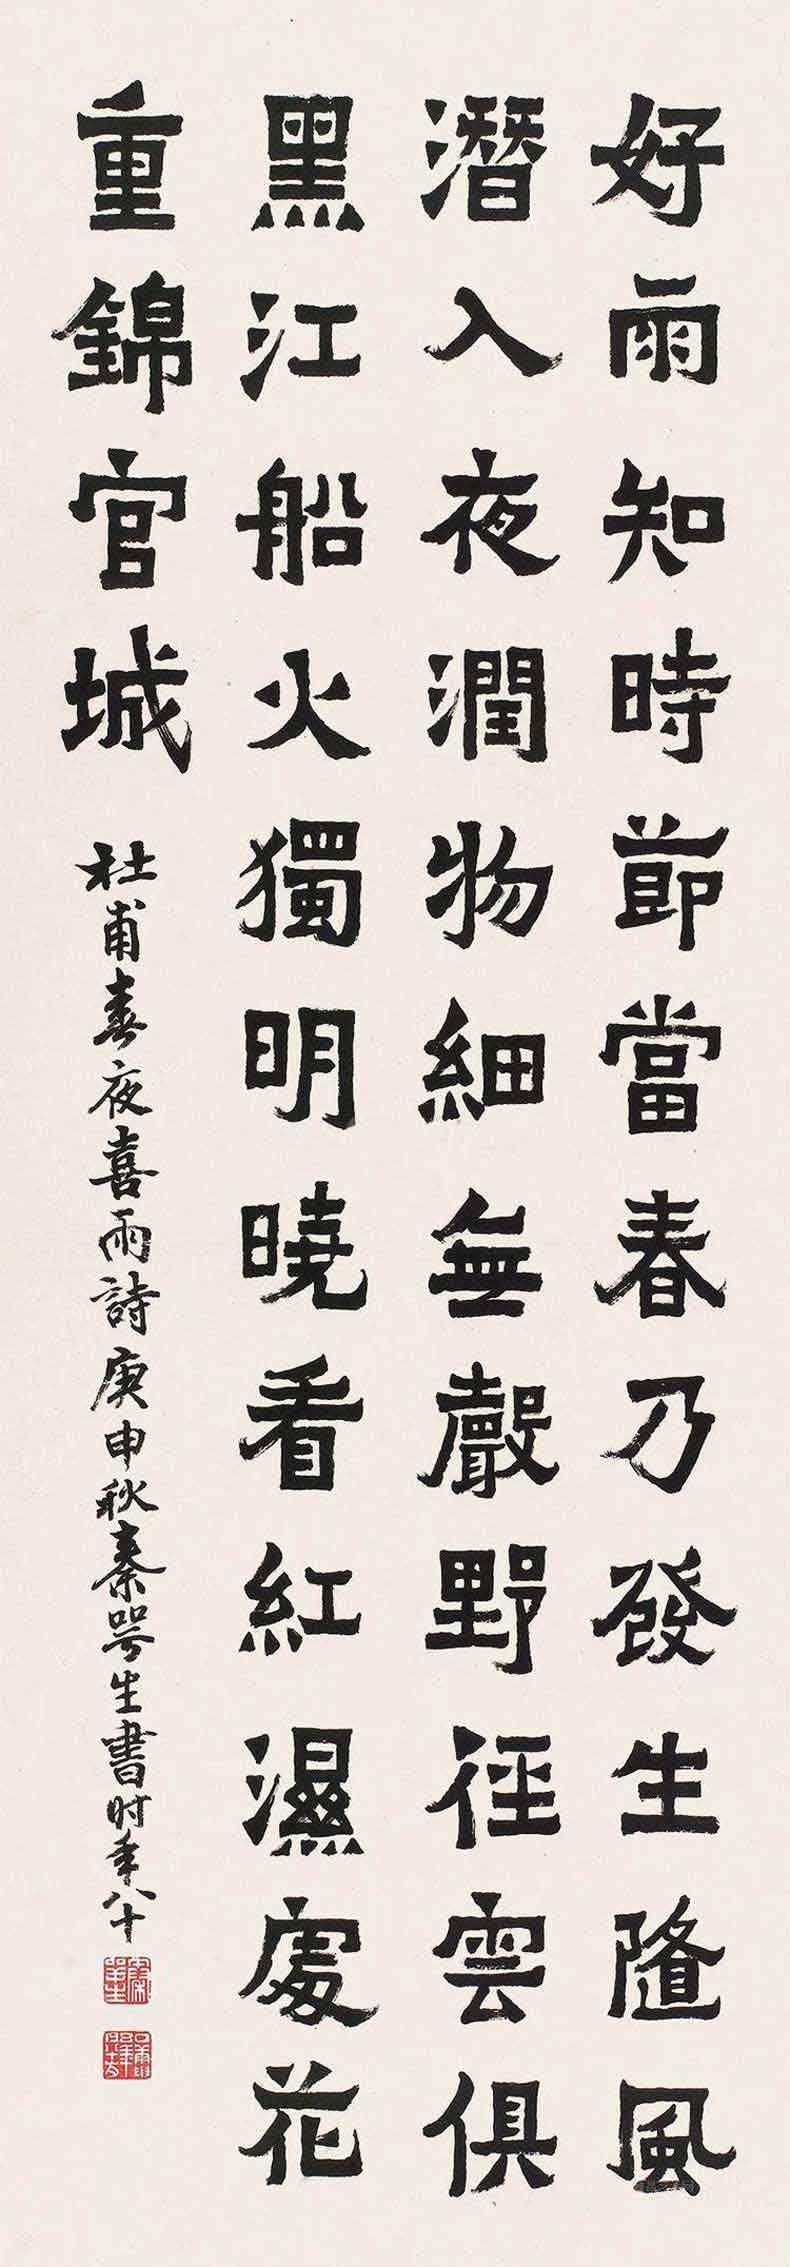 好雨知時節當春乃發生隨風
潛入夜潤物細無聲野徑雲俱
黑江船火獨明曉看紅濕處花
重錦官城
杜甫春夜喜雨詩庚申秋秦咢生書时年八十